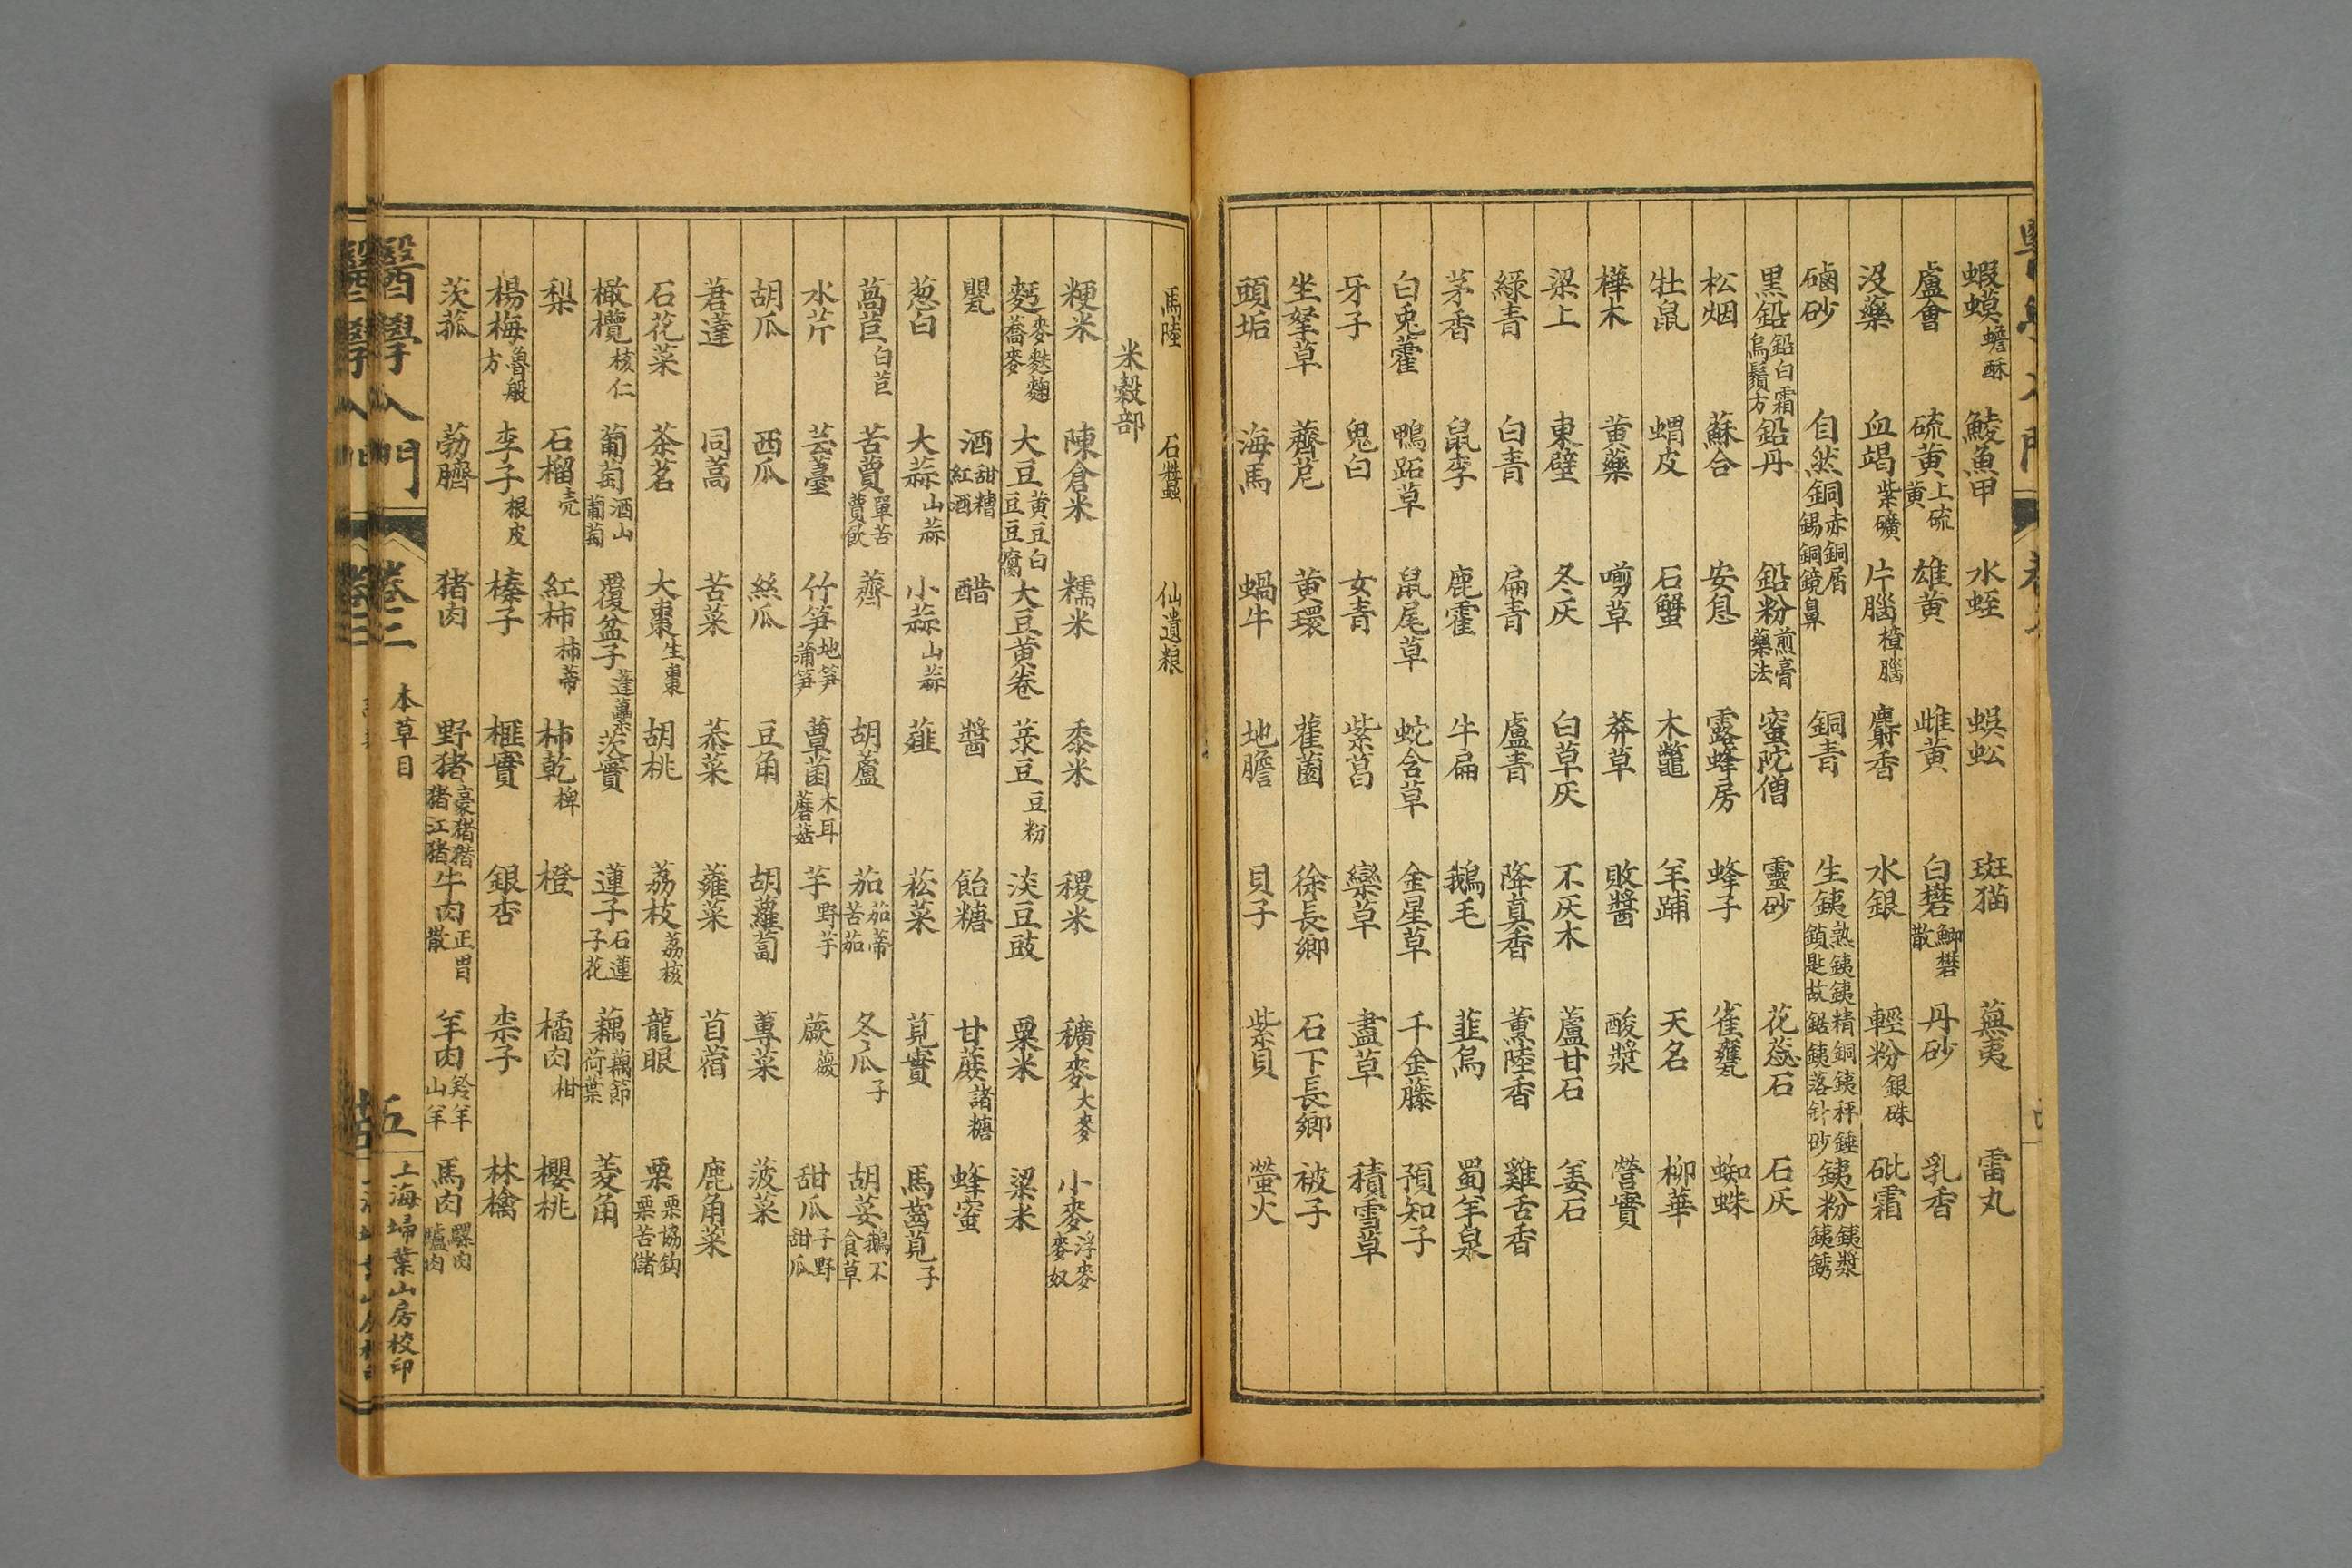 蝦蟆蟾酥 鯪魚甲 水蛭 蜈蚣 斑猫 蕪夷 雷丸
盧會 硫黄上硫黄 雄黄 雌黄 白礬鯽礬散 丹砂 乳香
没藥 血竭紫礦 片腦樟腦 麝香 水銀 輕粉銀硃 砒霜
磠砂 自然銅赤銅屑錫銅鏡鼻 銅青 生銕熟銕銕精銅銕秤錘鎖匙故鋸銕落針砂 銕粉銕漿銕銹
黑鉛鉛白霜烏鬚方 鉛丹 鉛粉煎膏藥法 蜜陀僧 靈砂 花蕊石 石灰
松烟 蘇合 安息 露蜂房 蜂子 雀甕 蜘蛛
牡鼠 蝟皮 石蟹 木鼈 羊蹄 天名 柳華
樺木 黄藥 剪草 莽草 敗醬 酸漿 營實
梁上 東壁 冬灰 白草灰 不灰木 蘆甘石 姜石
綠青 白青 扁青 盧青 降真香 薰陸香 雞舌香
茅香 鼠李 鹿霍 牛扁 鵝毛 韭烏 蜀羊泉
白兎藿 鴨跖草 鼠尾草 蛇含草 金星草 千金藤 預知子
牙子 鬼臼 女青 紫菖 欒草 藎草 積雪草
坐拏草 薺苨 黄環 雚菌 徐長卿 石下長卿 被子
頭垢 海馬 蝸牛 地膽 貝子 紫貝 螢火
馬陸 石蠶 仙遺粮
米穀部
粳米 陳倉米 糯米 黍米 稷米 穬麥大麥 小麥浮麥麥奴
麪麥麩麯蕎麥 大豆黄豆白豆豆腐 大豆黄卷 菉豆豆粉 淡豆豉 粟米 粱米
甖 酒甜糟紅酒 醋 醬 飴糖 甘蔗諸糖 蜂蜜
葱白 大蒜山蒜 小蒜山蒜 薤 菘菜 莧實 馬齒莧子
萵苣白苣 苦蕒單苦蕒飲 薺 胡蘆 茄茄蒂苦茄 冬瓜子 胡荽鵝不食草
水芹 芸薹 竹笋地笋蒲笋 蕈菌木耳蘑菇 芋野芋 蕨薇 甜瓜子野甜瓜
胡瓜 西瓜 絲瓜 豆角 胡蘿蔔 蓴菜 菠菜
莙蓬 同蒿 苦菜 菾菜 蕹菜 苜蓿 鹿角菜
石花菜 茶茗 大棗生棗 胡桃 荔枝荔核 龍眼 栗栗協鈎栗苦儲
橄欖核仁 葡萄酒山葡萄 覆盆子蓬虆 茨實 蓮子石蓮子花 藕藕節荷葉 菱角
梨 石榴壳 紅柿柿蒂 柿乾椑 橙 橘肉柑 櫻桃
楊梅魯般方 李子根皮 榛子 榧實 銀杏 柰子 林檎
茨菰 葧臍 猪肉 野猪豪猪猪江猪 牛肉正胃散 羊肉羚羊山羊 馬肉騾肉驢肉
醫學入門 卷二 本草目 五 上海埽葉山房校印